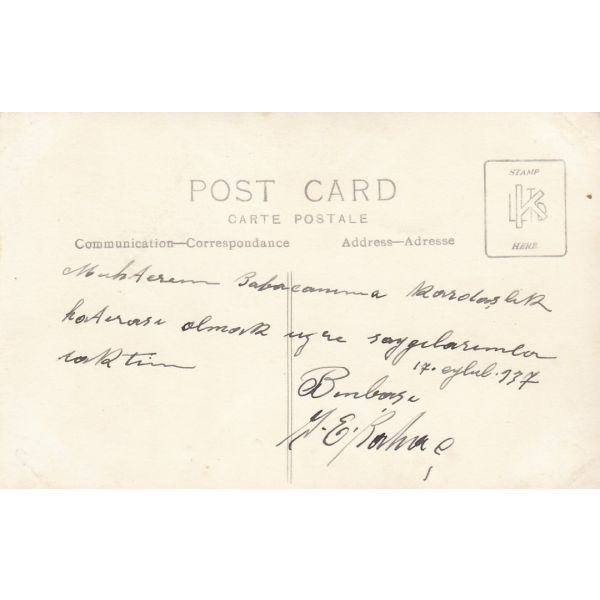 POST CARD
CARTE POSTALE
Communication—Correspondance
Address—Adresse
STAMP
HERE
Muhterem Babacanıma Kardaşlık
hatırası olmak üzre saygılarımla
taktim
17. eylul. 937
Binbaşı